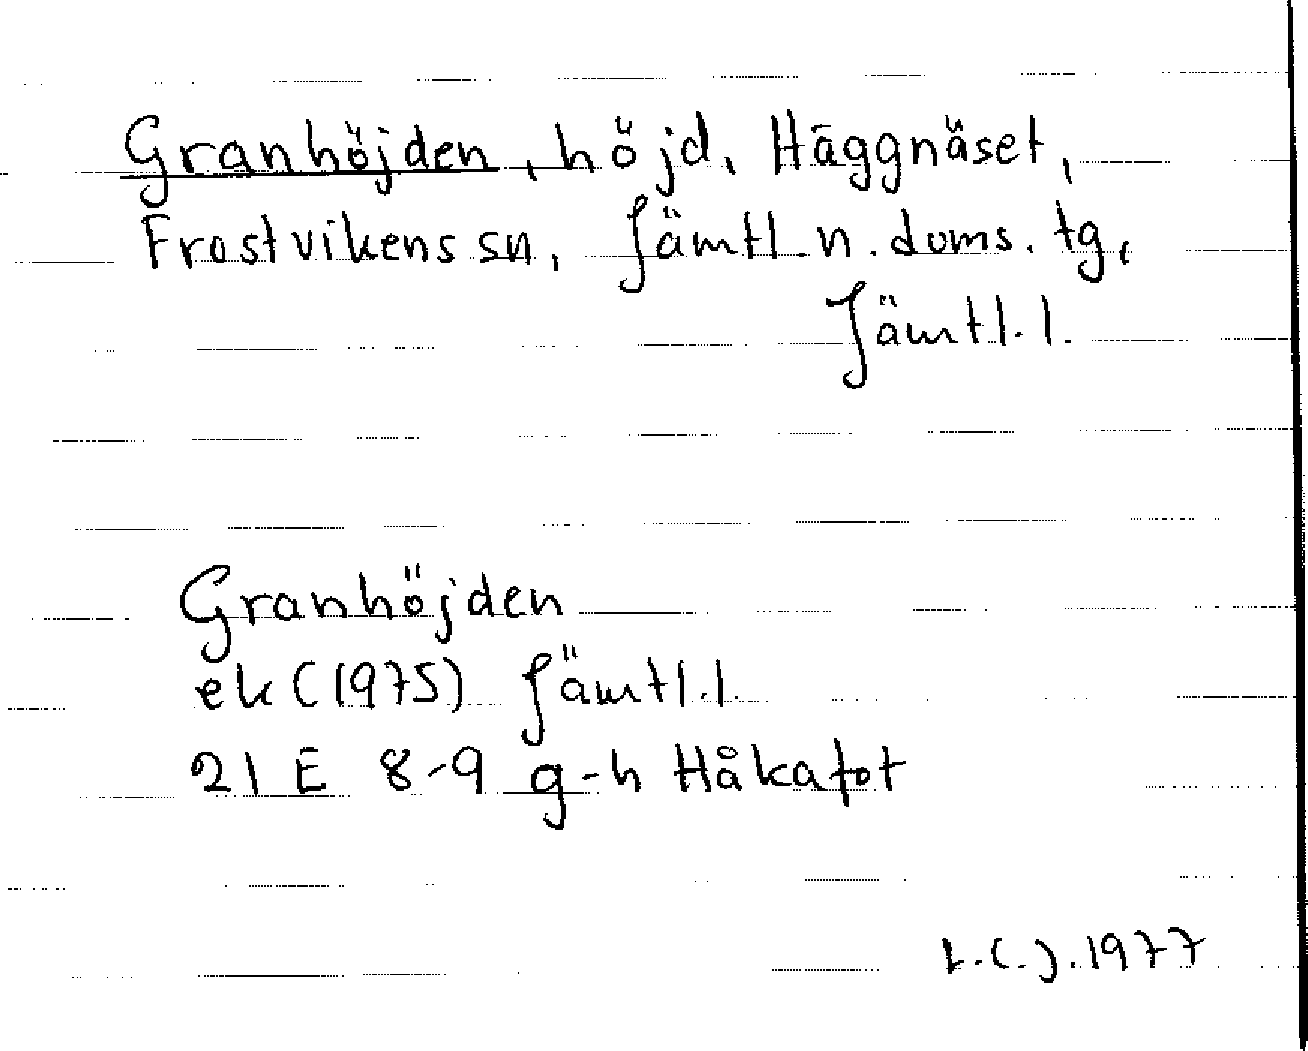 Granhöjden, höjd, Häggnäset,
Frostvikens sn, Jämtl. n. doms. tg,
Jämtl. l.
Granhöjden
ek (1975) Jämtl. l.
21 E 8-9 g-h Håkafot
1977